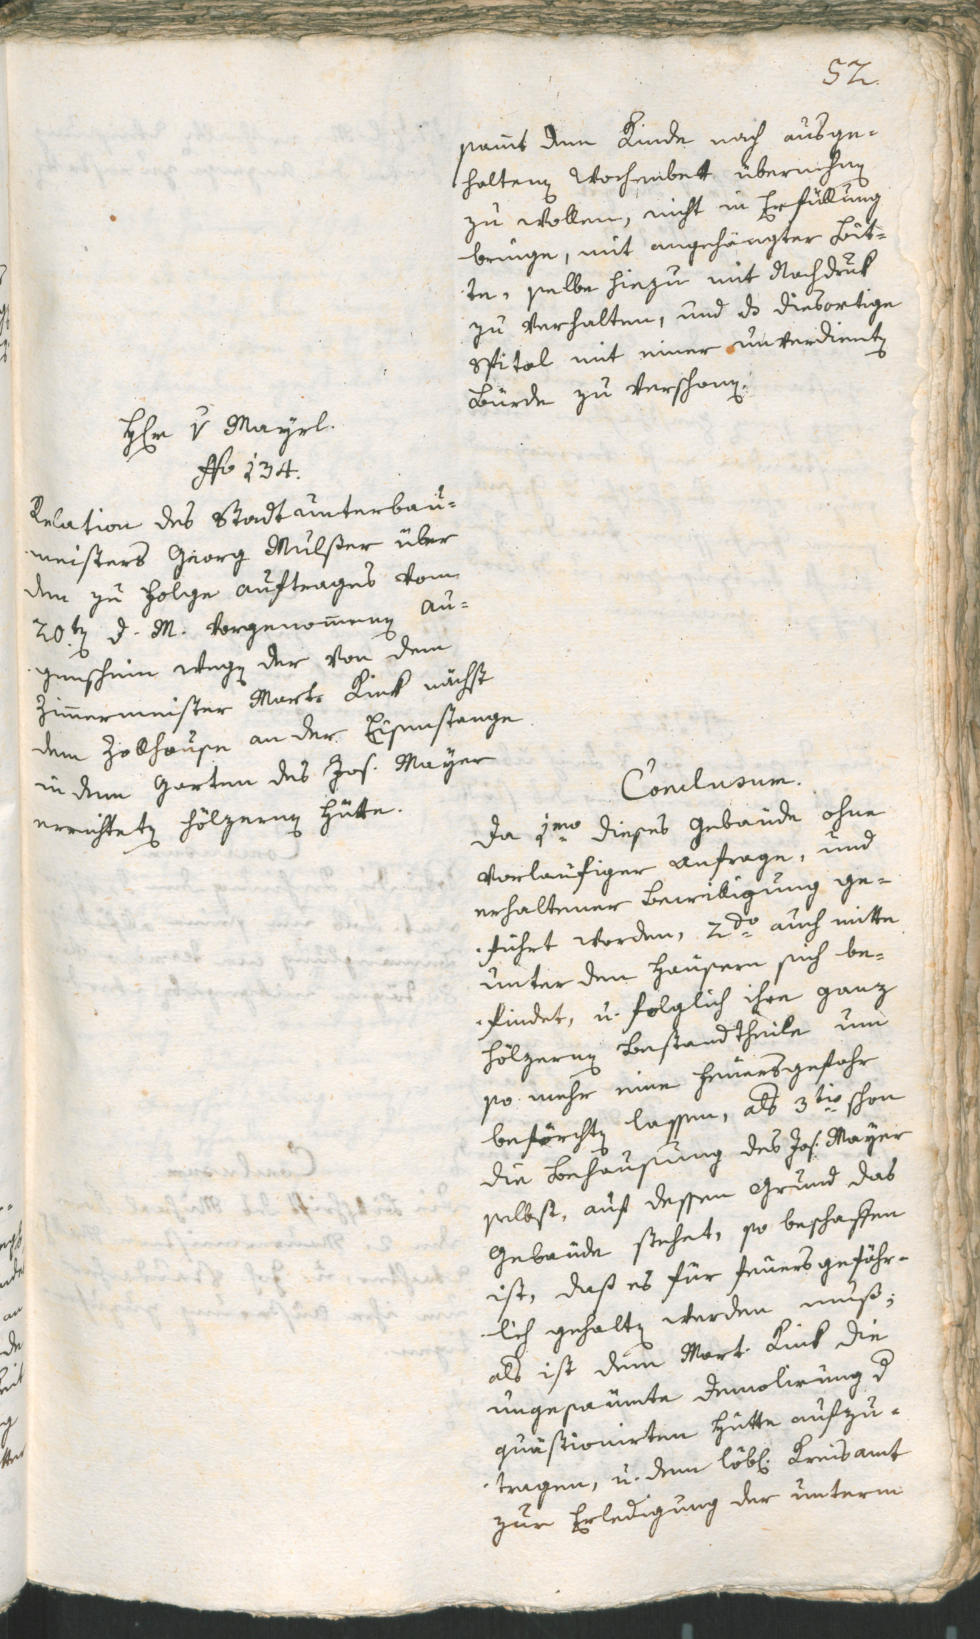 52.
samt dem Kinde nach ausge-
haltenen Wochenbett übernehmen
zu wollen, nicht in Erfüllung
bringe, mit angehängter Bit-
te, selbe hiezu mit Nachdruk
zu verhalten, und ds diesortige
Spital mit einer unverdienten
Bürde zu verschonen.
Hr v Mayrl.
No 134.
Relation des Stadtunterbau-
meisters Georg Mulser über
den zu Folge auftrages vom
20ten d. M. vorgenommenen Au-
genschein wegen der von dem
Zimmermeister Mart. Kink nächst
dem Zollhause an der Eisenstange
in dem Garten des Jos. Mayer
errichteten hölzernen Hütte.
Conclusum.
Da 1mo dieses Gebäude ohne
vorläufiger Anfrage, und
erhaltener Bewilligung ge-
führt worden, 2do auch mitte
unter den Häusern sich be-
findet, u. folglich ihre ganz
hölzernen Bestandtheile um
so mehr eine Feuersgefahr
beförchten lassen, als 3tio schon
die Behausung des Jos. Mayer
selbst, auf dessen Grund das
Gebäude stehet, so beschaffen
ist, daß es für feuersgefähr-
lich gehalten werden muß;
als ist dem Mart. Kink die
ungesäumte Demolirung d
quästionirten Hütte aufzu-
tragen, u. dem löbl. Kreisamt
zur Erledigung der unterm